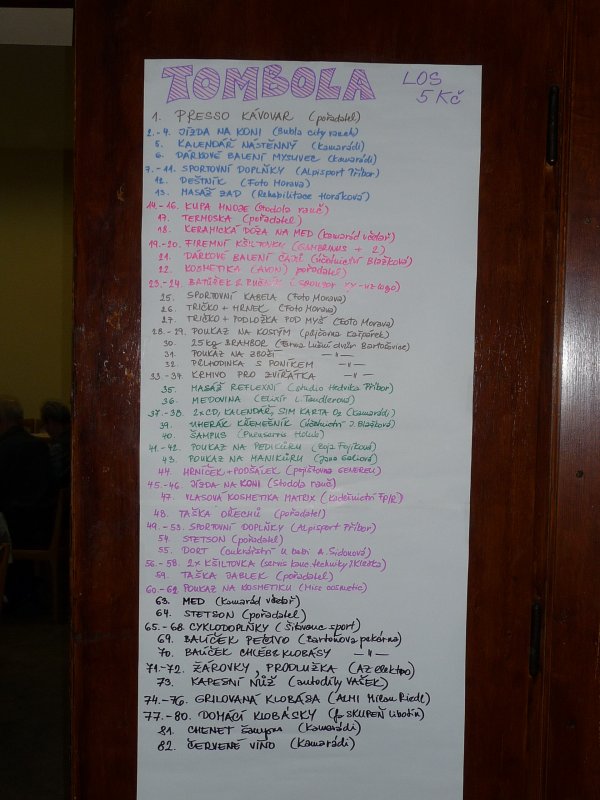 TOMBOLA
LOS
5 Kč
1. PRESSO KÁVOVAR (pořadatel)
2.-4. JÍZDA NA KONI (Bubla city ranch)
5. KALENDÁŘ NÁSTĚNNÝ (Kamarádi)
6. DÁRKOVÉ BALENÍ MYSLIVEC (Kamarádi)
7.-11. SPORTOVNÍ DOPLŇKY (Alpisport Příbor)
12. DEŠTNÍK (Foto Morava)
13. MASÁŽ ZAD (Rehabilitace Horáková)
14.-16. KUPA HNOJE (Stodola ranč)
17. TERMOSKA (pořadatel)
18. KERAMICKÁ DÓZA NA MED (Kamarád včelař)
19.-20. FIREMNÍ KŠILTOVKY (GAMBRINUS + 2)
21. DÁRKOVÉ BALENÍ ČAJŮ (účetnictví Blažková)
22. KOSMETIKA (AVON) pořadatel)
23.-24. BATŮŽEK 2 RUČNÍK (sponzor
25. SPORTOVNÍ KABELA (Foto Morava)
26. TRIČKO + HRNEK (Foto Morava)
27. TRIČKO + PODLOŽKA POD MYŠ (Foto Morava)
28.-29. POUKAZ NA KOSTÝM (půjčovna Kašpárek)
30. 25 kg BRAMBOR (Farma Lužní dvůr Bartošovice)
31. POUKAZ NA ZBOŽÍ —"—
32. PROHODINKA S PONÍKEM —"—
33.-34. KRMIVO PRO ZVÍŘÁTKA —"—
35. MASÁŽ REFLEXNÍ (studio Hedvika Příbor)
36. MEDOVINA (Elixír L. Tandlerová)
37.-38. 2xCD, KALENDÁŘ, SIM KARTA O2 (Kamarádi)
39. UHERÁK KŘEMEŠNÍK (účetnictví J. Blažková)
40. ŠAMPUS (Pneuservis Holub)
41.-42. POUKAZ NA PEDIKÚRU (Fojtíková)
43. POUKAZ NA MANIKÚRU (Jana
44. HRNÍČEK + PODŠÁLEK (pojišťovna GENERELI)
45.-46. JÍZDA NA KONI (Stodola ranč)
47. VLASOVÁ KOSMETIKA MATRIX (kadeřnictví
48. TAŠKA OŘECHŮ (pořadatel)
49.-53. SPORTOVNÍ DOPLŇKY (Alpisport Příbor)
54. STETSON (pořadatel)
55. DORT (cukrářství u babi A. Šidonová)
56.-58. 2x KŠILTOVKA (servis kanc. techniky
59. TAŠKA JABLEK (pořadatel)
60.-62. POUKAZ NA KOSMETIKU (Miss cosmetic)
63. MED (Kamarád včelař)
64. STETSON (pořadatel)
65.-68. CYKLODOPLŇKY (Šitavanc sport)
69. BALÍČEK PEČIVO (Bartoňova pekárna)
70. BALÍČEK CHLÉB KLOBÁSY —"—
71.-72. ŽÁROVKY, PRODLUŽKA (AZ elektro)
73. KAPESNÍ NŮŽ (autodíly VAŠEK)
74.-76. GRILOVANÁ KLOBÁSA (ALMI Milan Riedl)
77.-80. DOMÁCÍ KLOBÁSKY (fa SKUPEŇ Libotín)
81. CHENET šampus (Kamarádi)
82. ČERVENÉ VÍNO (Kamarádi)